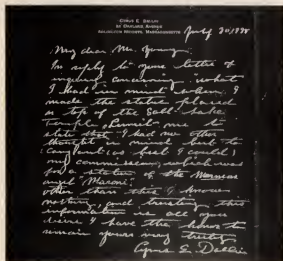 CYRUS E. DALLIN
69 OAKLAND AVENUE
ARLINGTON HEIGHTS, MASSACHUSETTS
July 30/1938
My dear Mr. Young:
In reply to your letter of
inquiry concerning what
I had in mind when I
made the statue placed
on top of the Salt Lake
Temple, permit me to
state that I had no other
thought in mind but to
carry out as best I could
my commission, which was
for a statue of the Mormon
angel "Maroni."
Other than this I know
nothing, and trusting this
information is all you
desire I have the honor to
remain yours very truly
Cyrus E. Dallin